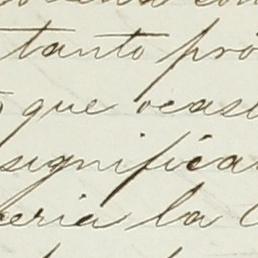 tanto pró
que ocasi
significa
ceria la